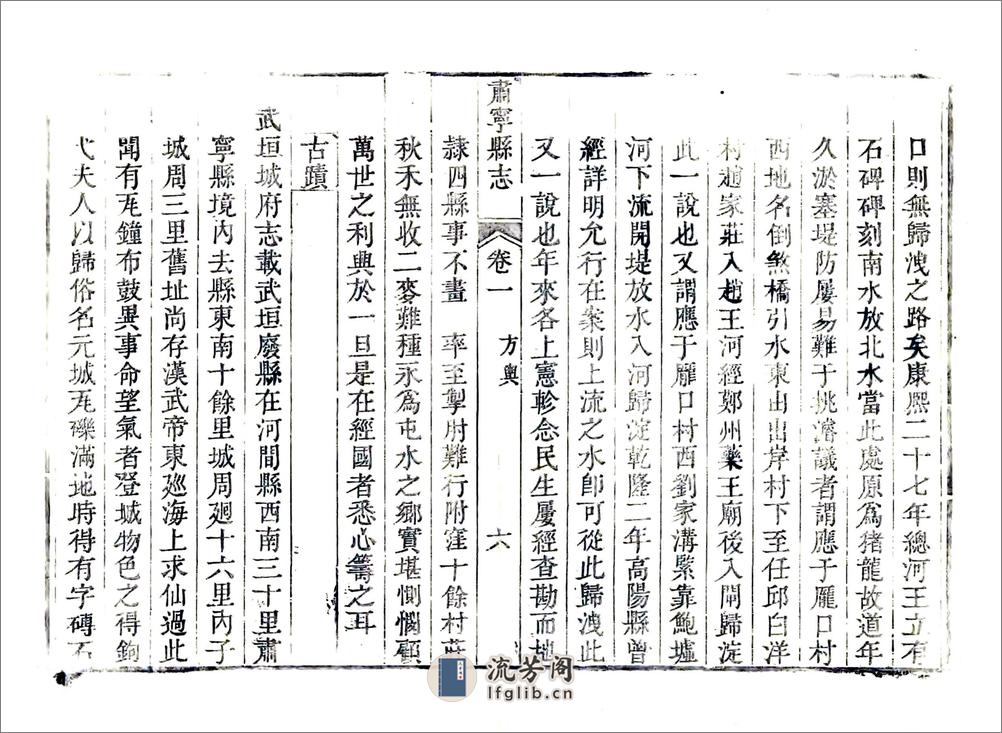 口則無歸洩之路矣康熙二十七年總河王立有
石碑碑刻南水放北水當此處原爲猪龍故道年
久淤塞堤防屢易難于挑濬議者謂應于龎口村
西地名倒煞橋引水東出出岸村下至任邱白洋
村趙家莊入趙王河經鄭州藥王廟後入閘歸淀
此一說也又謂應于龎口村西劉家溝緊靠鮑墟
河下流開堤放水入河歸淀乾隆二年高陽縣曾
經詳明允行在案則上流之水卽可從此歸洩此
又一說也年來各上憲軫念民生屢經查勘而地
肅寧縣志 卷一 方輿 六
隷四縣事不畫 率至掣肘難行附窪十餘村莊
秋禾無收二麥難種永爲屯水之鄉實堪惻憫顧
萬世之利興於一旦是在經國者悉心籌之耳
古蹟
武垣城府志載武垣廢縣在河間縣西南三十里肅
寧縣境內去縣東南十餘里城周廻十六里內子
城周三里舊址尚存漢武帝東廵海上求仙過此
聞有瓦鐘布鼓異事命望氣者登城物色之得鉤
弋夫人以歸俗名元城瓦礫滿地時得有字磚石
流芳阁
lfglib.cn